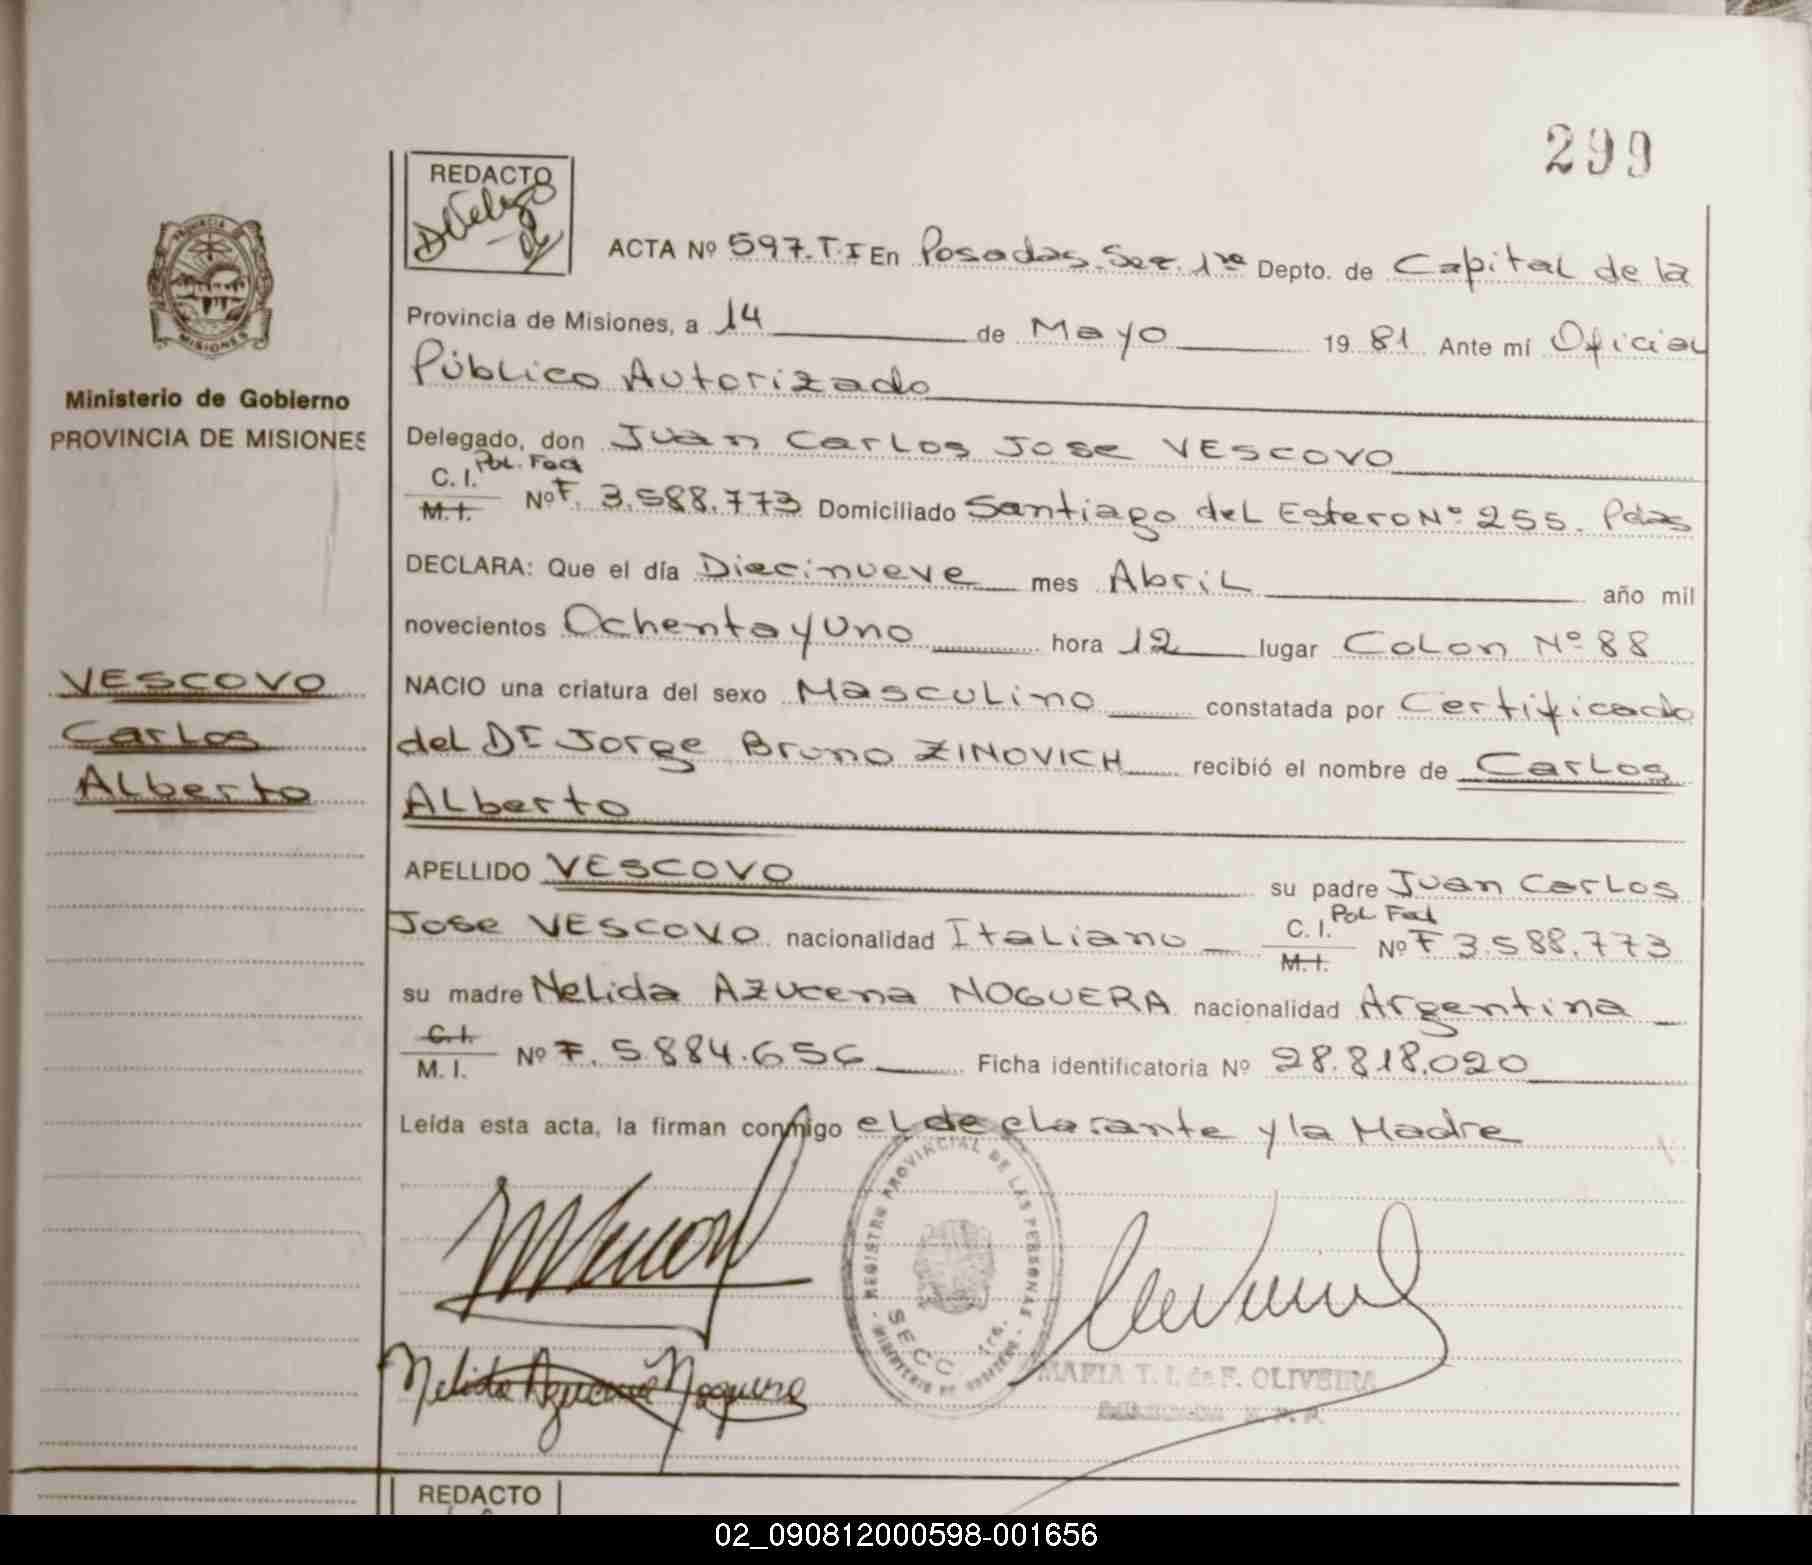 299
REDACTO
ACTA Nº 597.T.I En Posadas. Sec. 1ra Depto. de Capital de la
PROVINCIA DE
MISIONES
Provincia de Misiones, a 14 de Mayo 19 81 Ante mí Oficial
Público Autorizado
Ministerio de Gobierno
PROVINCIA DE MISIONES
Delegado, don Juan Carlos Jose VESCOVO
C. I. Pol. Fed
M. I. Nº F. 3.588.773 Domiciliado Santiago del Estero Nº 255. Pdas
DECLARA: Que el día Diecinueve mes Abril año mil
novecientos Ochenta y Uno hora 12 lugar Colon Nº 88
VESCOVO
Carlos
Alberto
NACIO una criatura del sexo Masculino constatada por Certificado
del Dr Jorge Bruno ZINOVICH recibió el nombre de Carlos
Alberto
APELLIDO VESCOVO su padre Juan Carlos
Jose VESCOVO nacionalidad Italiano C. I. Pol Fed M. I. Nº F 3.588.773
su madre Nelida Azucena NOGUERA nacionalidad Argentina
C. I.
M. I. Nº F. 5.884.656 Ficha identificatoria Nº 28.818.020
Leída esta acta, la firman conmigo el declarante y la Madre
REGISTRO PROVINCIAL DE LAS PERSONAS
SECC. 1ra.
MINISTERIO DE GOBIERNO
Nelida Azucena Noguera
MARIA T. I. de F. OLIVEIRA
REDACTO
02_090812000598-001656